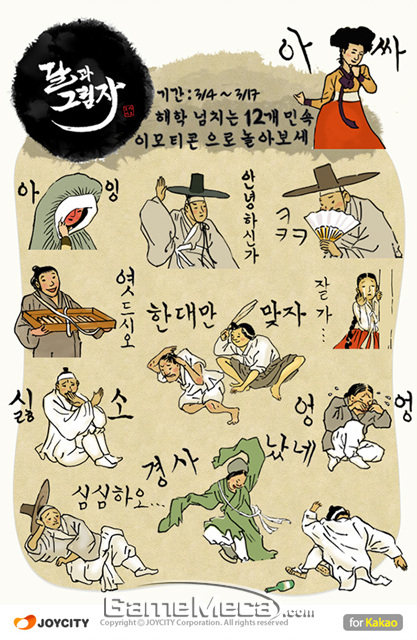 달과
그림자
기간 : 3/4 ~ 3/17
해학 넘치는 12개 민속
이모티콘 으로 놀아보세
아싸
아잉
안녕하신가
ㅋㅋㅋ
엿드시오
한대만 맞자
잘가...
싫소
엉엉
경사났네
심심하오...
GameMeca.com
JOYCITY
Copyright ⓒ JOYCITY Corporation. All rights reserved
for Kakao